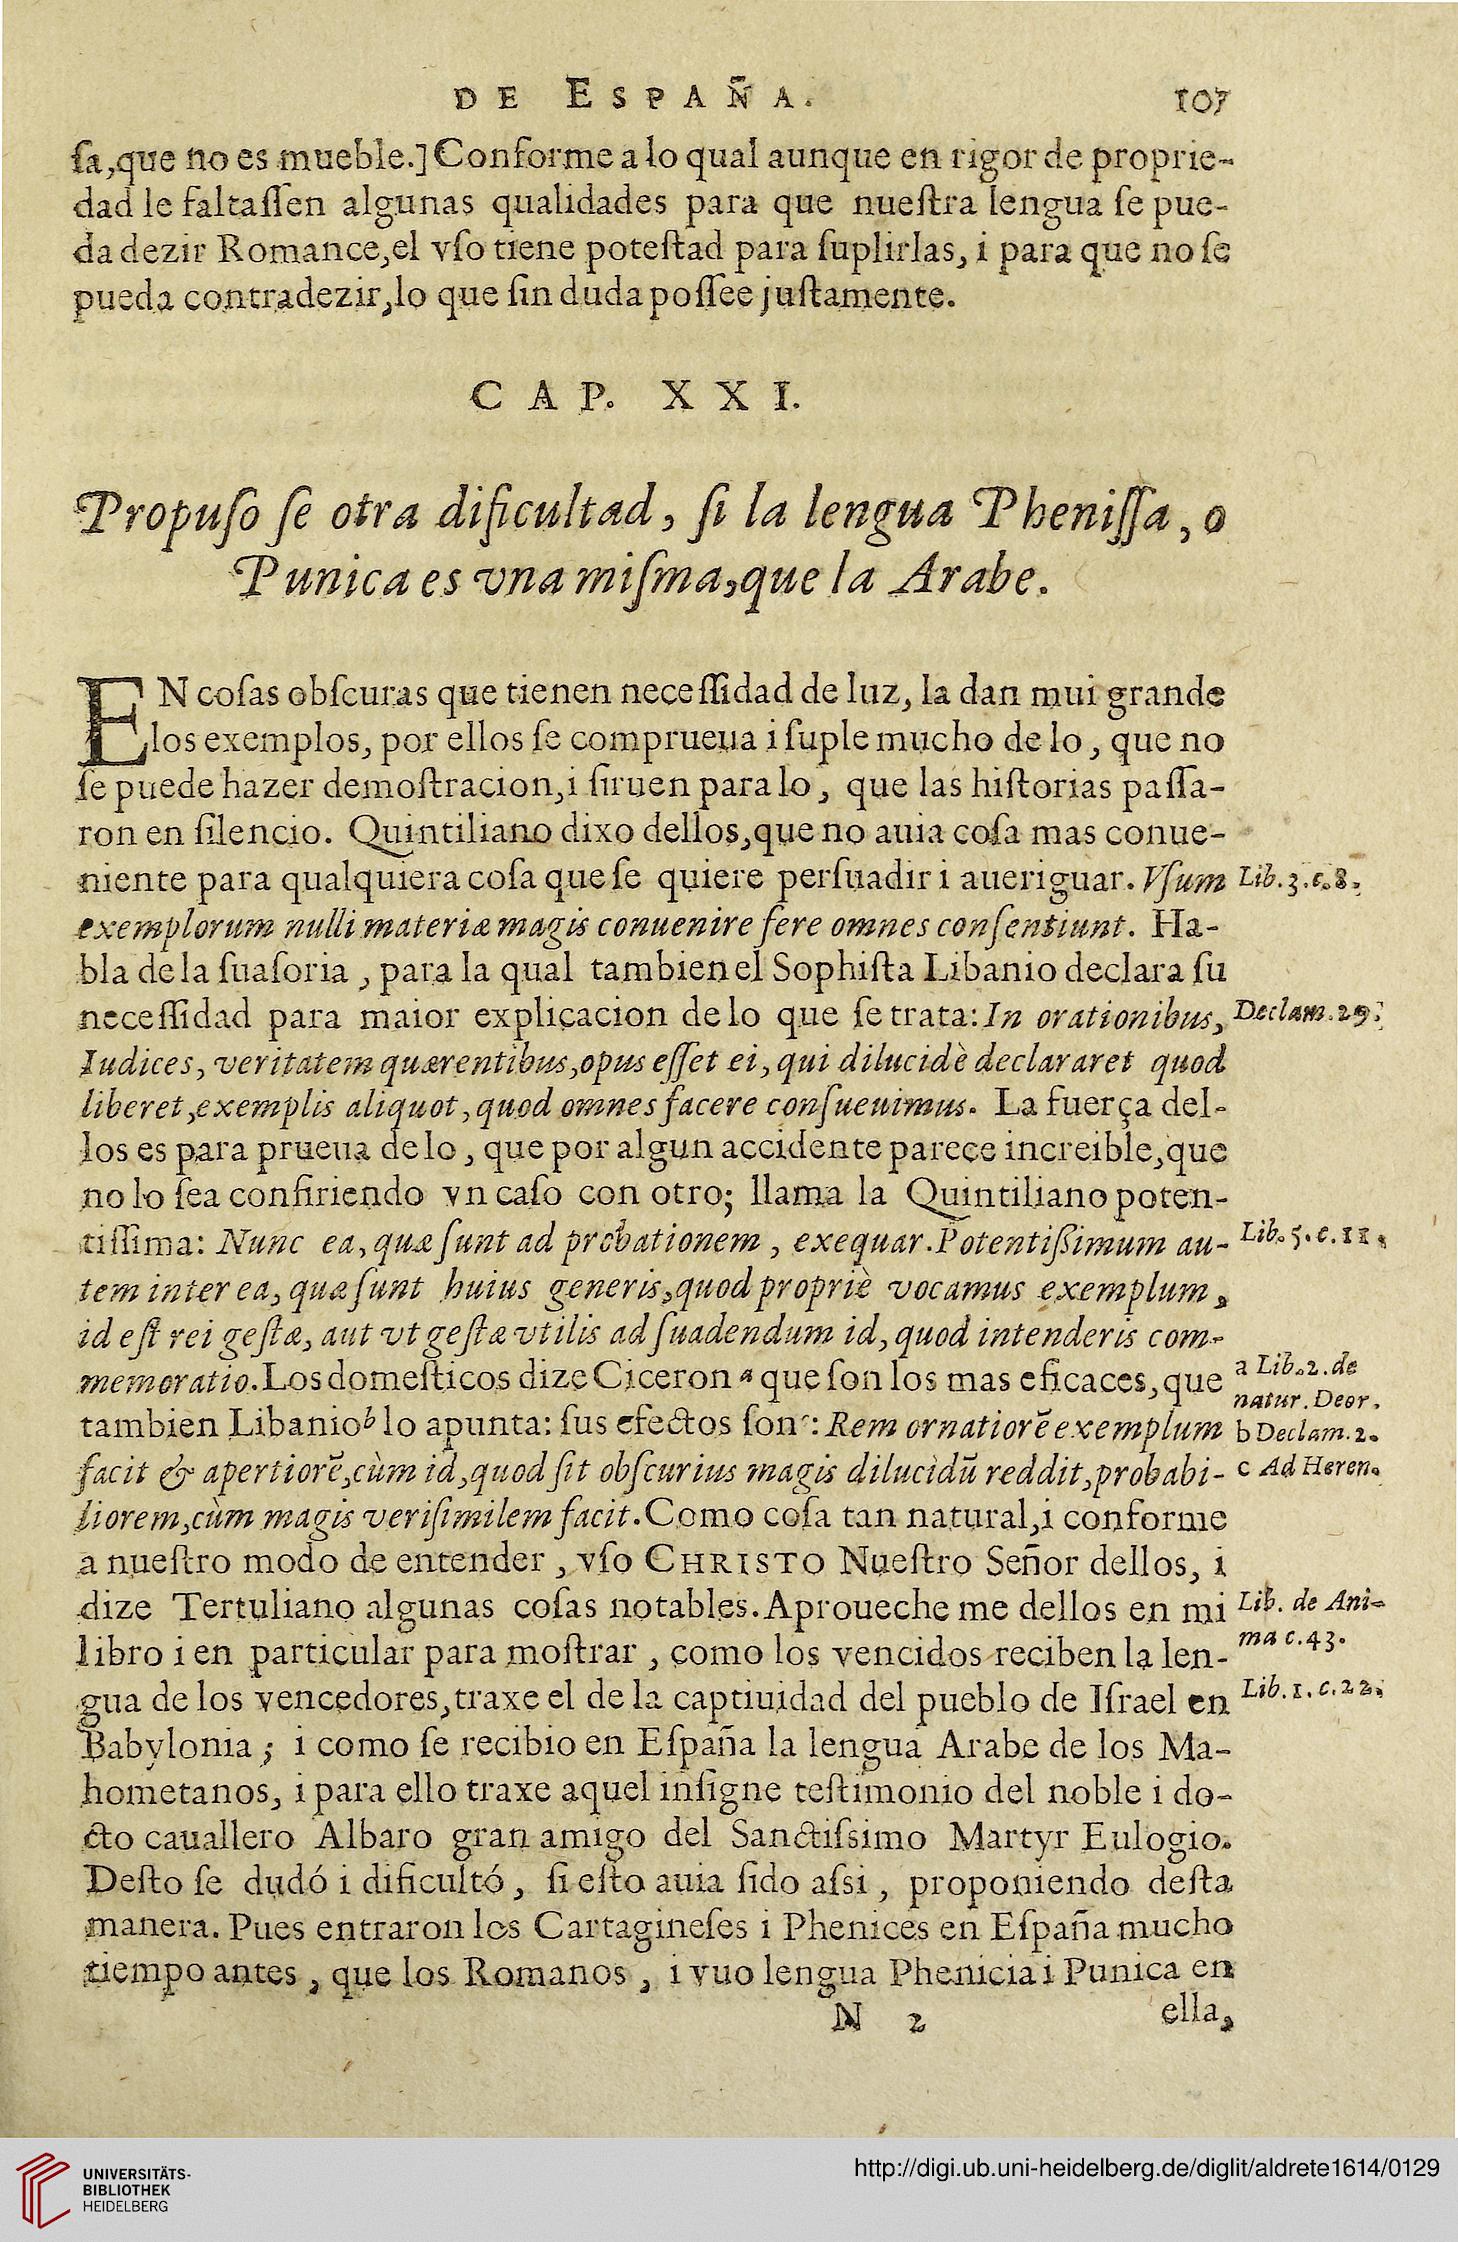 DE ESPAÑA. 107
ſa,que no es mueble.] Conforme a lo qual aunque en rigor de proprie-
dad le faltaſſen algunas qualidades para que nueſtra lengua ſe pue-
da dezir Romance,el vſo tiene poteſtad para ſuplirlas, i para que no ſe
pueda contradezir,lo que ſin duda poſſee juſtamente.
CAP. XXI.
Propuſo ſe otra dificultad, ſi la lengua Pheniſſa, o
Punica es vna miſma,que la Arabe.
EN coſas obſcuras que tienen neceſſidad de luz, la dan mui grande
los exemplos, por ellos ſe comprueua i ſuple mucho de lo, que no
ſe puede hazer demoſtracion,i ſiruen para lo, que las hiſtorias paſſa-
ron en ſilencio. Quintiliano dixo dellos,que no auia coſa mas conue-
niente para qualquiera coſa que ſe quiere perſuadir i aueriguar. Vſum Lib.3.c.8.
exemplorum nulli materiæ magis conuenire fere omnes conſentiunt. Ha-
bla de la ſuaſoria, para la qual tambien el Sophiſta Libanio declara ſu
neceſſidad para maior explicacion de lo que ſe trata: In orationibus, Declam.29.
Iudices, veritatem quærentibus,opus eſſet ei, qui dilucidè declararet quod
liberet,exemplis aliquot, quod omnes facere conſueuimus. La fuerça del-
los es para prueua de lo, que por algun accidente parece increible,que
no lo ſea confiriendo vn caſo con otro; llama la Quintiliano poten-
tiſſima: Nunc ea, quæ ſunt ad probationem, exequar. Potentiſsimum au- Lib.5.c.11.
tem inter ea, quæ ſunt huius generis,quod propriè vocamus exemplum,
id eſt rei geſtæ, aut vt geſtæ vtilis ad ſuadendum id, quod intenderis com-
memoratio. Los domeſticos dize Ciceron a que ſon los mas eficaces,que a Lib.2.de
natur.Deor.
tambien Libanio b lo apunta: ſus efectos ſon c: Rem ornatiorẽ exemplum b Declam.2.
facit & apertiorẽ,cùm id,quod ſit obſcurius magis dilucidũ reddit,probabi- c Ad Heren.
liorem,cùm magis veriſimilem facit. Como coſa tan natural,i conforme
a nueſtro modo de entender, vſo CHRISTO Nueſtro Señor dellos, i
dize Tertuliano algunas coſas notables. Aproueche me dellos en mi Lib. de Ani-
libro i en particular para moſtrar, como los vencidos reciben la len- ma c.43.
gua de los vencedores,traxe el de la captiuidad del pueblo de Iſrael en Lib.1.c.22.
Babylonia; i como ſe recibio en Eſpaña la lengua Arabe de los Ma-
hometanos, i para ello traxe aquel inſigne teſtimonio del noble i do-
cto cauallero Albaro gran amigo del Sanctiſsimo Martyr Eulogio.
Deſto ſe dudó i dificultó, ſi eſto auia ſido aſsi, proponiendo deſta
manera. Pues entraron los Cartagineſes i Phenices en Eſpaña mucho
tiempo antes, que los Romanos, i vuo lengua Phenicia i Punica en
N 2 ella,
UNIVERSITÄTS-
BIBLIOTHEK
HEIDELBERG
http://digi.ub.uni-heidelberg.de/diglit/aldrete1614/0129